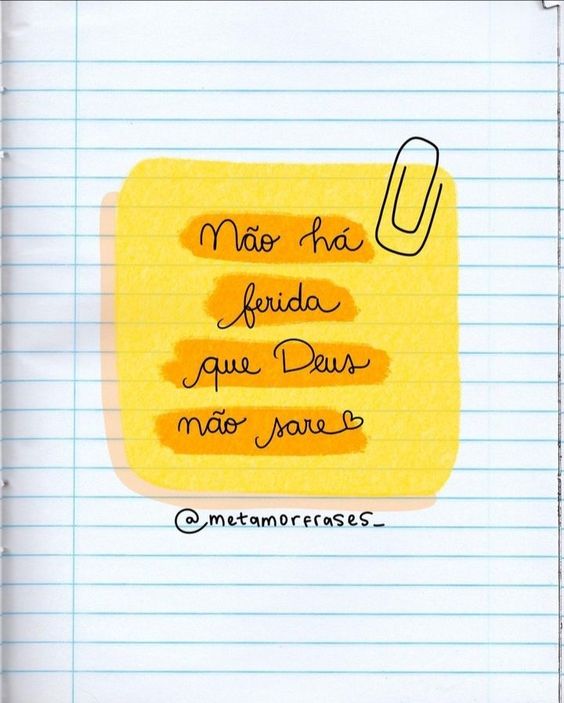 Não há
ferida
que Deus
não sare
@metamorfrases_